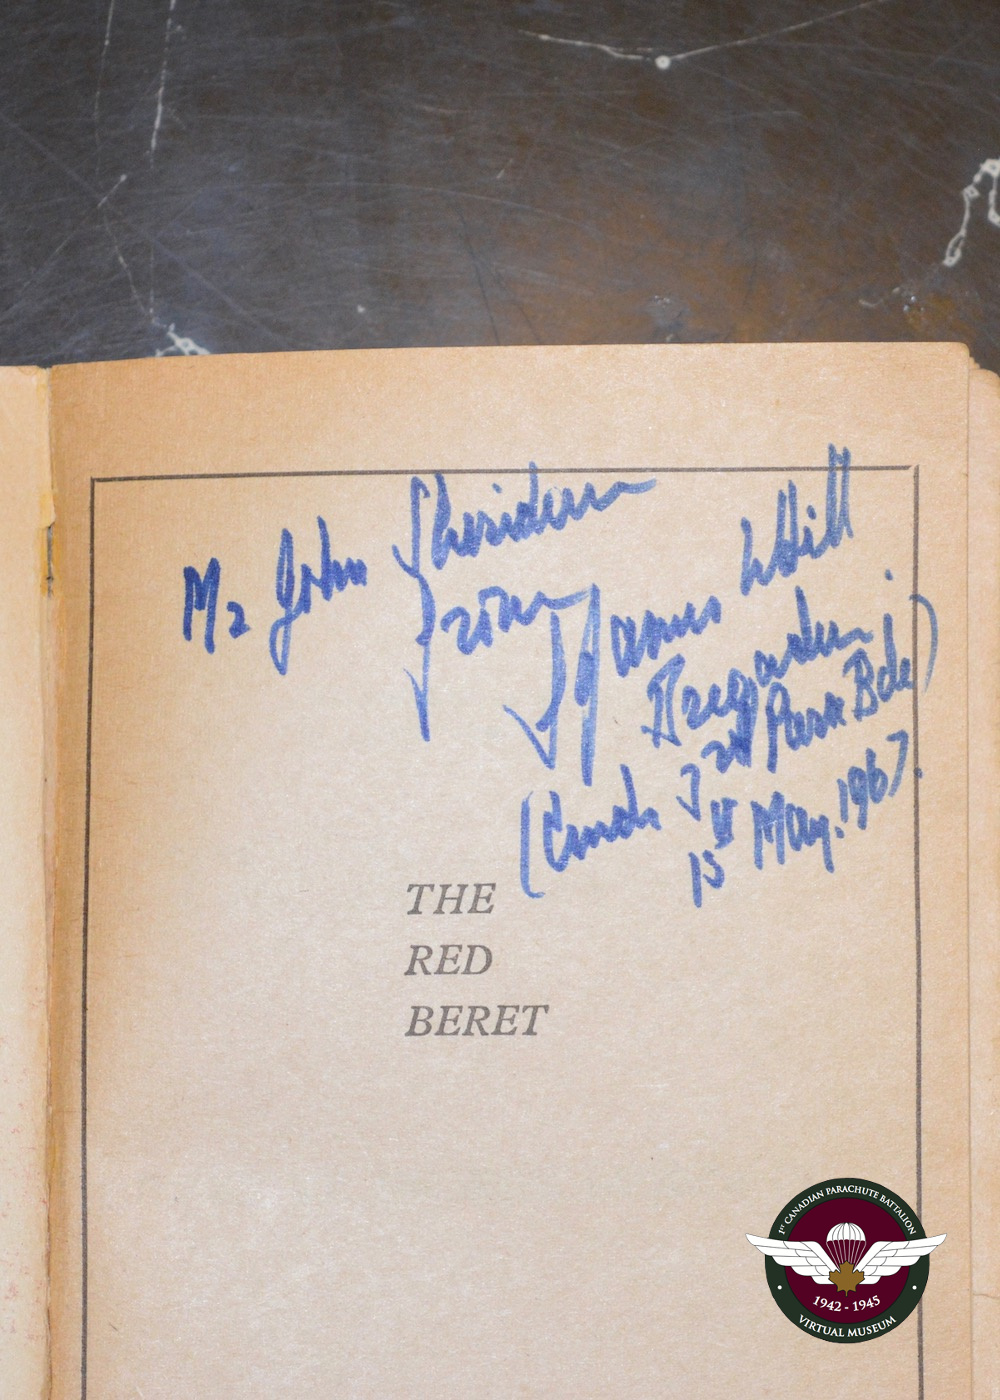 Mr John Sheridan
from James Hill
Brigadier.
(Cmdr 3rd Para Bde)
15th May. 1967.
THE
RED
BERET
1ST CANADIAN PARACHUTE BATTALION
1942 - 1945
VIRTUAL MUSEUM